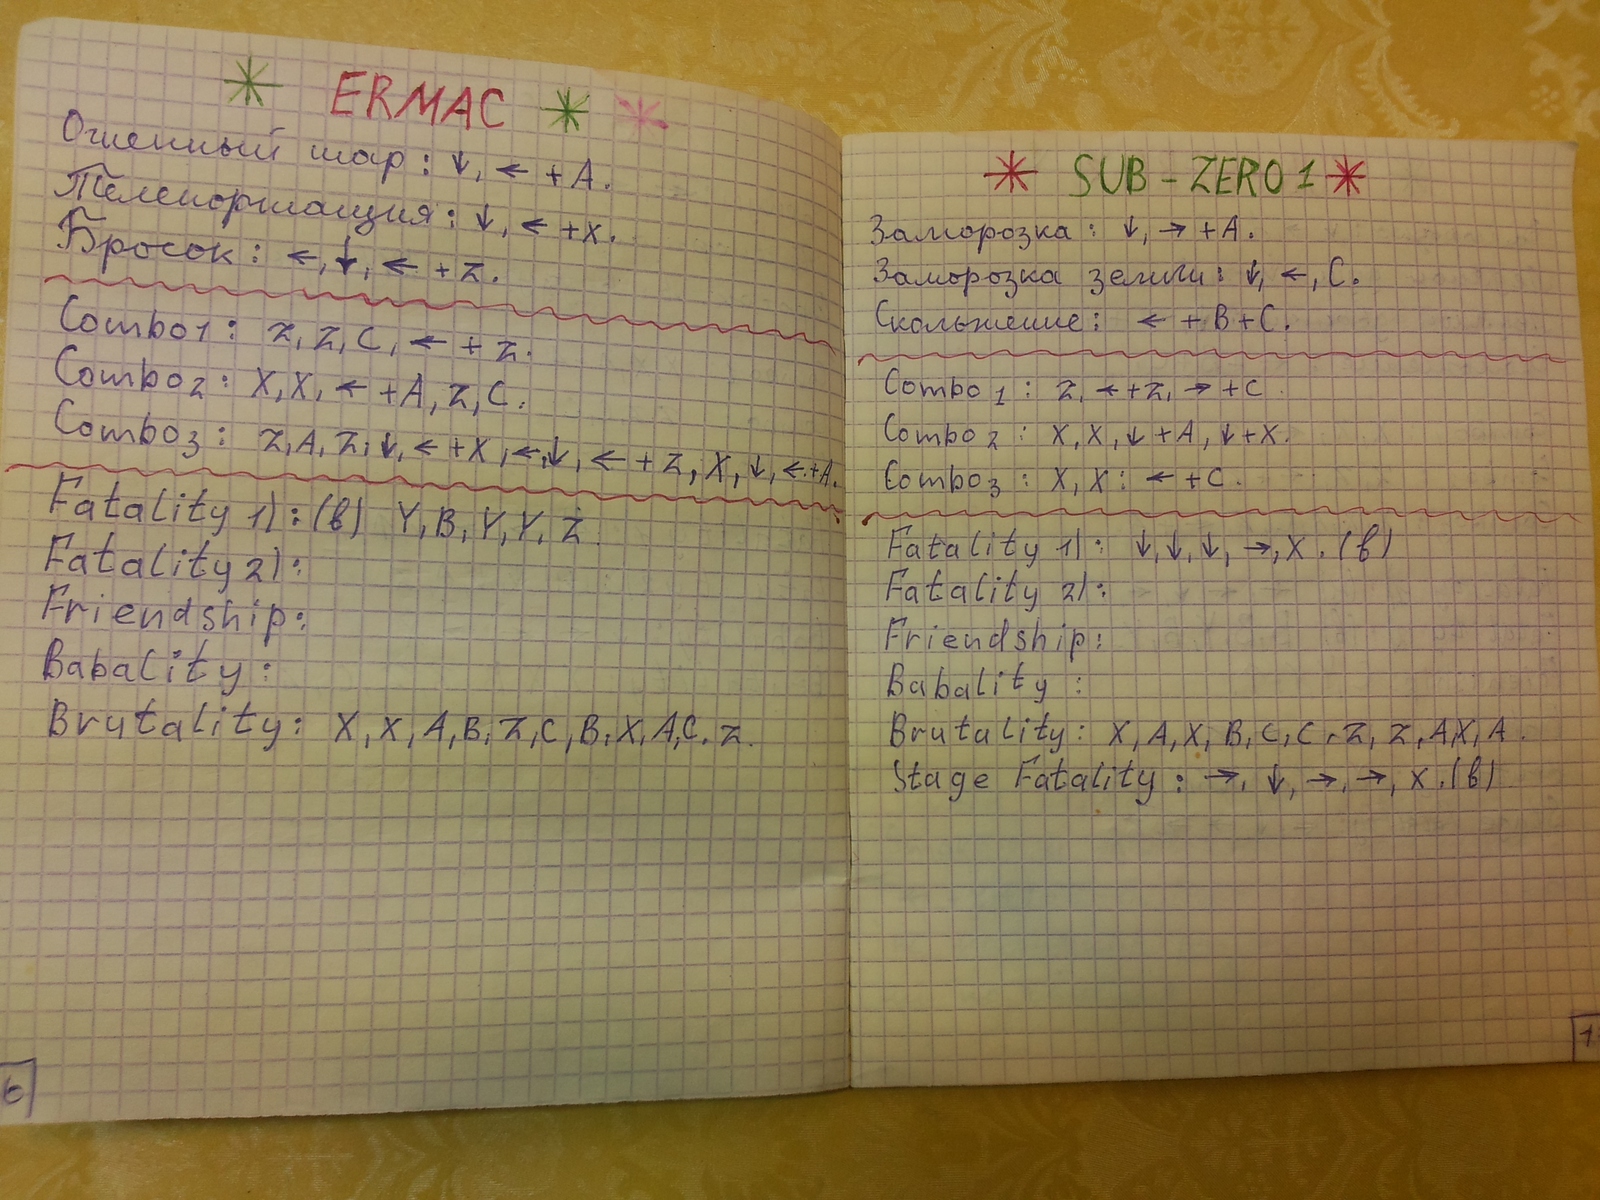 ERMAC
Огненный шар: ↓, ← + A.
Телепортация: ↓, ← + x.
Бросок: ←, ↓, ← + z.
Combo1: z, z, C, ← + z.
Combo2: X, X, ← + A, z, C.
Combo3: z, A, z, ↓, ← + X, ←, ↓, ← + z, X, ↓, ← + A.
Fatality 1): (в) Y, B, Y, Y, z.
Fatality 2):
Friendship:
Babality:
Brutality: X, X, A, B, z, C, B, X, A, C, z.
6
SUB-ZERO 1
Заморозка: ↓, → + A.
Заморозка земли: ↓, ←, C.
Скольжение: ← + B + C.
Combo1: z, ← + z, → + C
Combo2: X, X, ↓ + A, ↓ + X.
Combo3: X, X: ← + C.
Fatality 1): ↓, ↓, ↓, →, X. (в)
Fatality 2):
Friendship:
Babality:
Brutality: X, A, X, B, C, C, z, z, A, X, A.
Stage Fatality: →, ↓, →, →, X. (в)